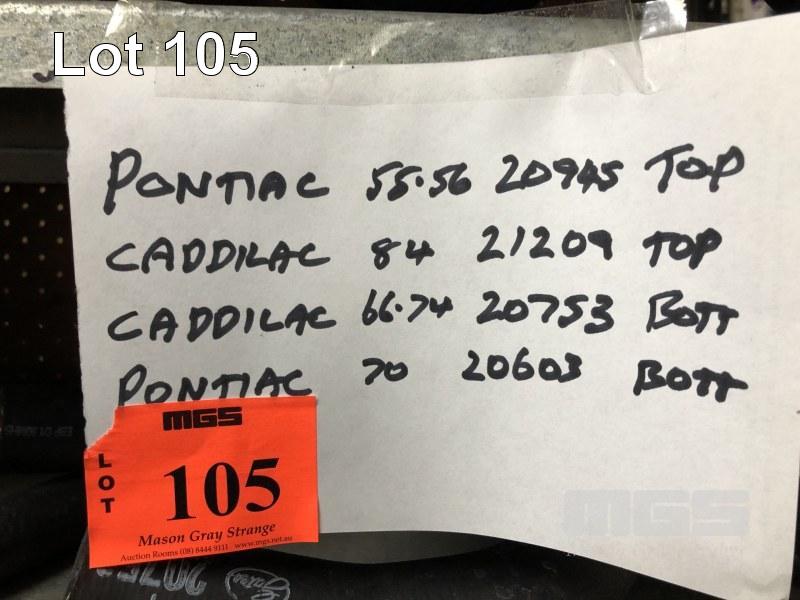 Lot 105
PONTIAC 55.56 20945 TOP
CADDILAC 84 21209 TOP
CADDILAC 66.74 20753 BOTT
PONTIAC 70 20603 BOTT
MGS
LOT
105
Mason Gray Strange
Auction Rooms (08) 8444 9111 www.mgs.net.au
MGS
Gates